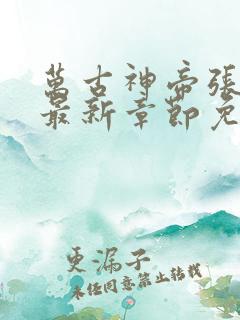 萬古神帝張
最新章節免
更漏子
未经同意禁止转载